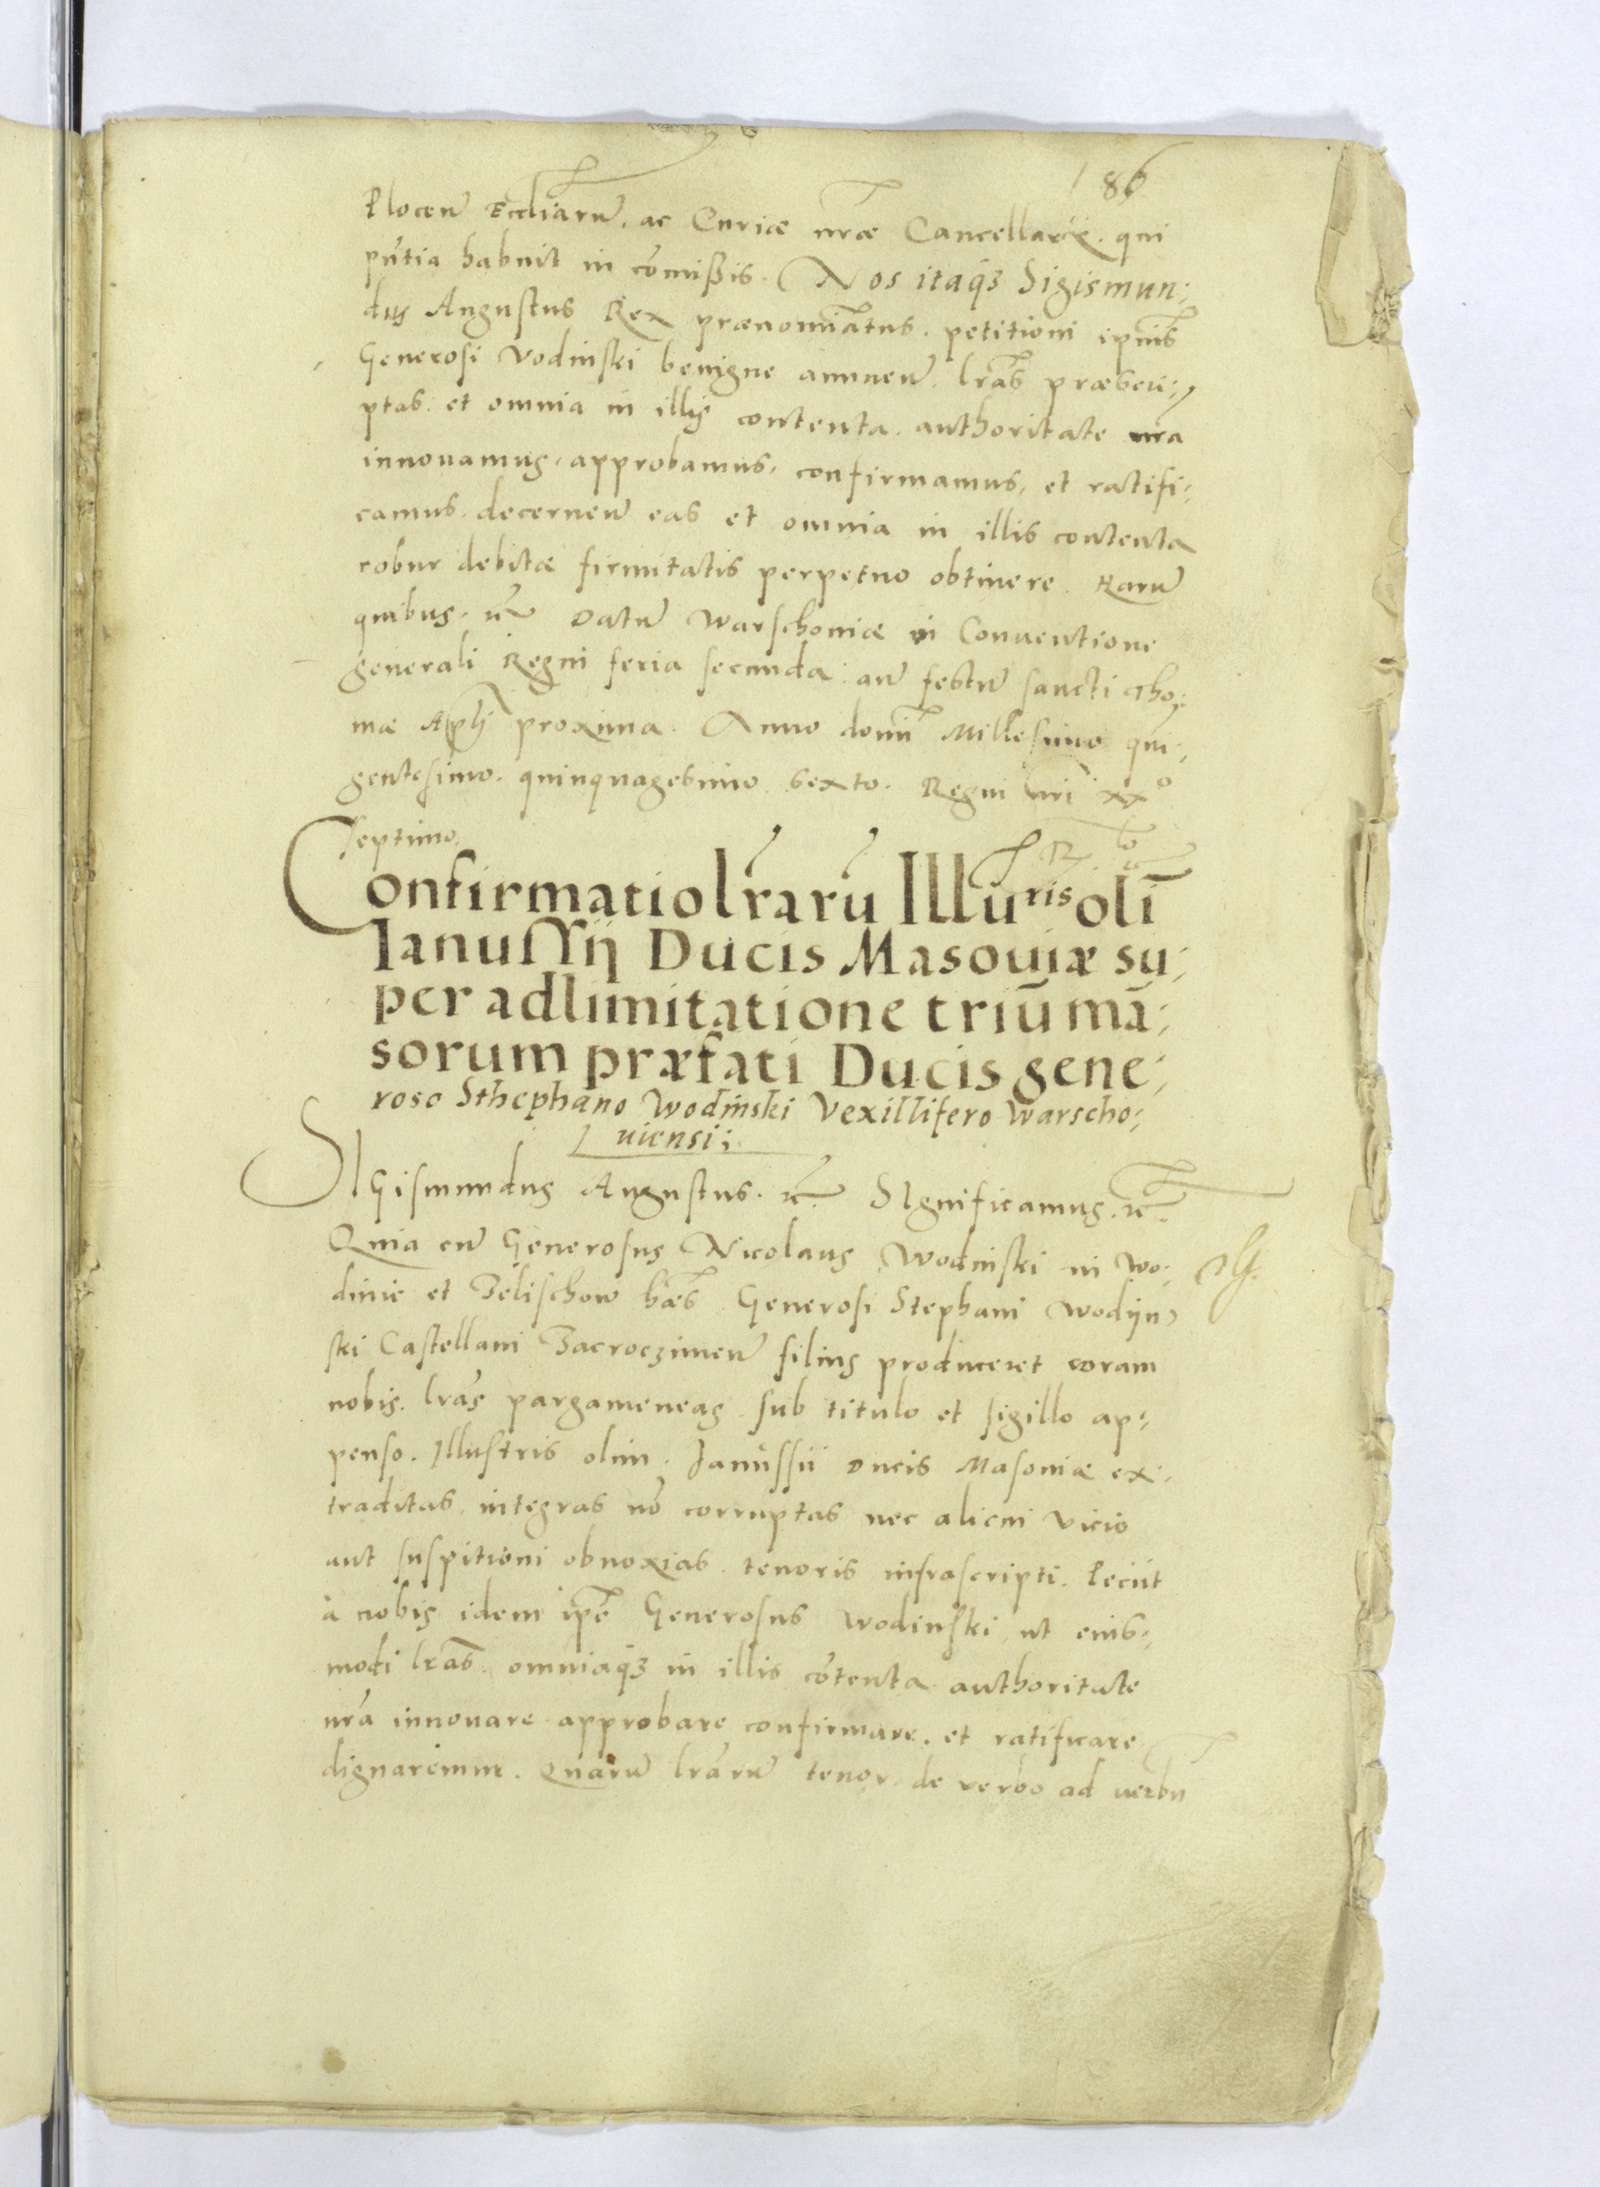 186
Plocen̄ Eccl̄iarū. ac Curiæ nr̄æ Cancellariæ. qui
pn̄tia habuit in com̄issis. Nos itaq3 Sigismun:
dus Augustus Rex prænomīatus. petitioni
Generosi Vodinski benigne annuen̄. lr̄as præscri:
ptas. et omnia in illis contenta. authoritate nr̄a
innouamus. approbamus. confirmamus. et ratifi:
camus. decernen̄ eas et omnia in illis contenta
robur debitæ firmitatis perpetuo obtinere. Harū
quibus. Datū Warschouiæ in Conuentione
generali Regni feria secunda an̄ festū sancti Tho:
mæ Apl̄i proxima. Anno domī Millesimo qui:
gentesimo. quinquagesimo sexto. Regni nr̄i xx°
septimo.
Confirmatio lr̄arū Illuris oli̅
Ianussij Ducis Masouiæ su:
per adlimitatione triū mā:
sorum præfati Ducis gene:
roso Sthephano Wodinski Vexillifero Warscho:
uiensi:
SIGismundus Augustus. SIgnificamus.
Quia cū Generosus Nicolaus Wodinski in Wo:
dinie et Zelischow hæs Generosi Stephani Wodijn
ski Castellani Zacroczimen̄ filius produceret coram
nobis. lr̄as pargameneas sub titulo et sigillo ap:
penso. Illustris olim. Janussii Ducis Masouiæ ex:
traditas integras nō corruptas nec alicui vicio
aut suspitioni obnoxias. tenoris infrascripti. Peciit
à nobis idem ip̄e Generosus Wodinski ut euis:
modi lr̄as. omniaq3 in illis cōtenta authoritate
nr̄a innouare approbare confirmare. et ratificare
dignaremur. Quarū lr̄arū tenor de verbo ad uerbū